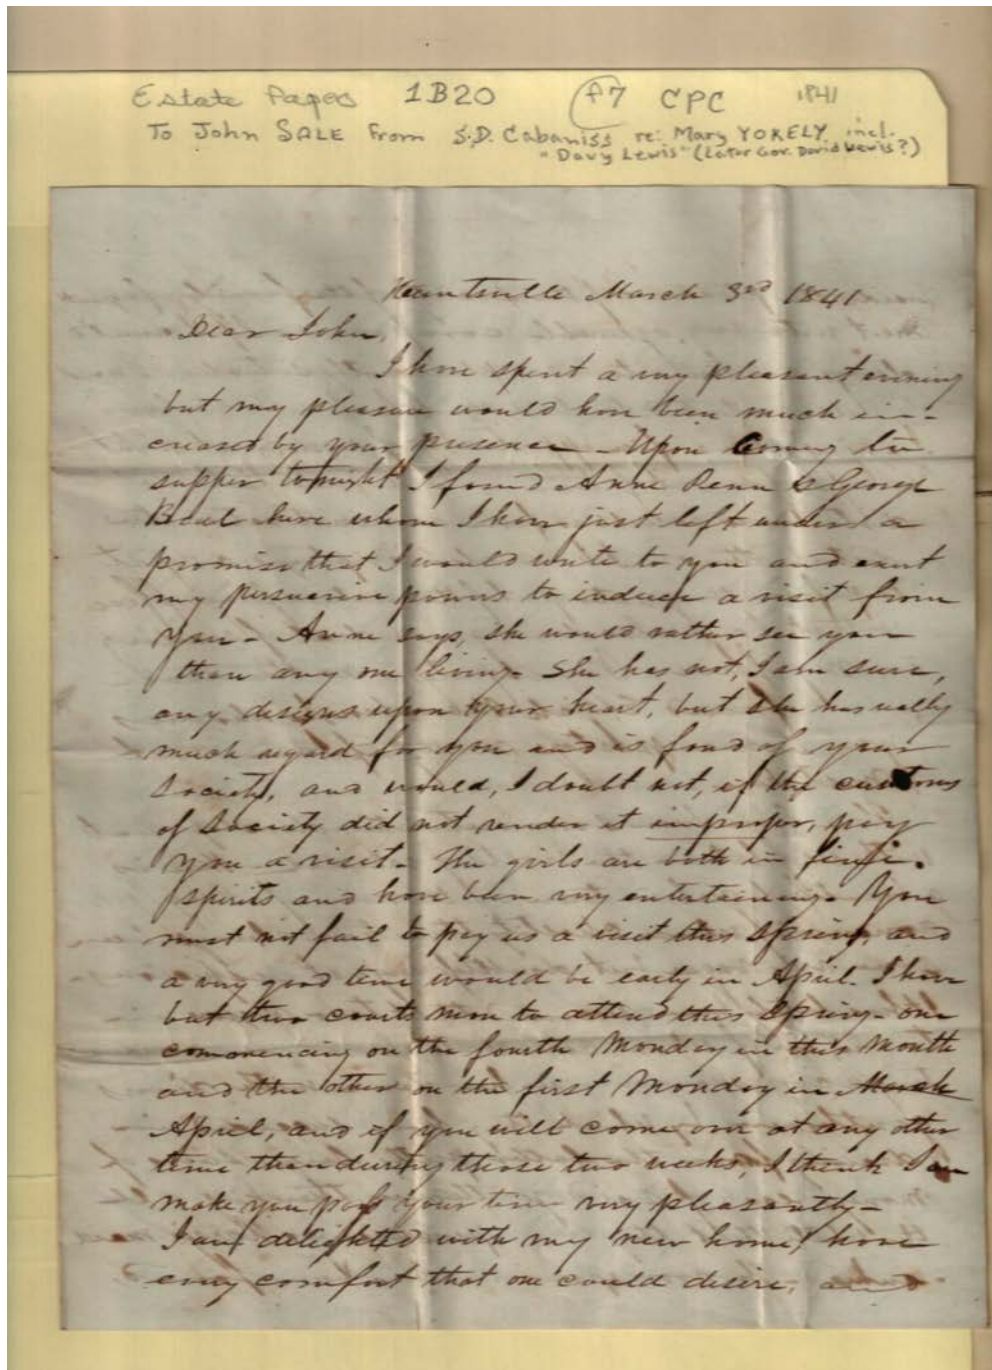 Estate Papers 1B20 f7 CPC 1841
To John SALE from S.D. Cabaniss re: Mary YOKELY incl.
"Davy Lewis" (Later Gov. David Lewis?)
Huntsville March 3rd 1841
Dear John,
I have spent a very pleasant evening
but my pleasure would have been much in-
creased by your presence - Upon coming to
supper tonight I found Anne & George
here whom I have just left under a
promise that I would write to you and exert
my persuasive powers to induce a visit from
you - Anne says, she would rather see you
than any one living - She has not, I am sure,
any designs upon your heart, but she has really
much regard for you and is fond of your
Society, and would, I doubt not, if the customs
of Society did not render it improper, pay
you a visit - The girls are both in fine
spirits and have been very entertaining - You
must not fail to pay us a visit this Spring, and
a very good time would be early in April. I have
but two courts more to attend this Spring - one
commencing on the fourth Monday in this Month
and the other on the first Monday in March
April, and if you will come over at any other
time than during those two weeks, I think I can
make you pass your time very pleasantly -
I am delighted with my new home, have
every comfort that one could desire, and